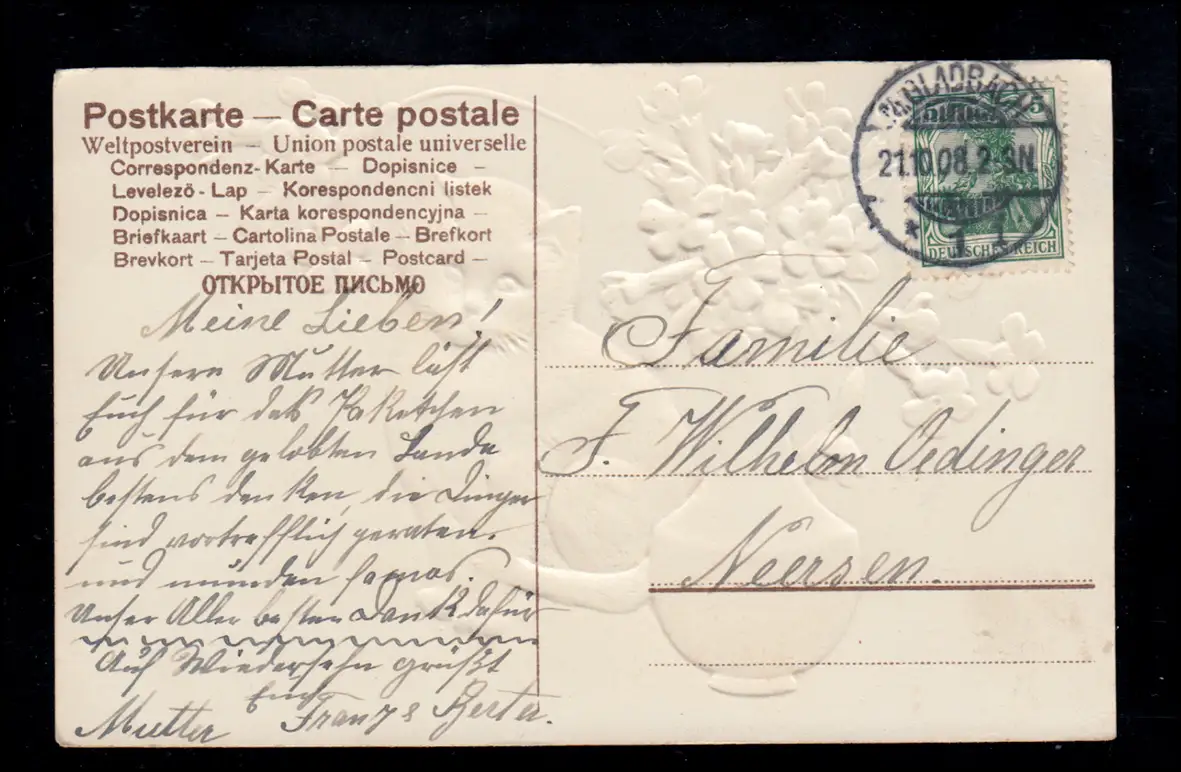 Postkarte — Carte postale
Weltpostverein — Union postale universelle
Correspondenz-Karte — Dopisnice —
Levelező-Lap — Korespondencni listek
Dopisnica — Karta korespondencyjna —
Briefkaart — Cartolina Postale — Brefkort
Brevkort — Tarjeta Postal — Postcard —
ОТКРЫТОЕ ПИСЬМО
Meine Lieben!
Unsere Mutter läßt
Euch für das Paketchen
aus dem gelobten Lande
bestens danken, die Dinger
sind vortrefflich geraten.
und munden famos.
Unser Aller besten Dank dafür
Auf Wiedersehn grüßt
Euch
Mutter Franz & Berta.
M. GLADBACH
21.10.08. 2-3N
1
5
DEUTSCHES REICH
Familie
F. Wilhelm Oedinger
Neersen.